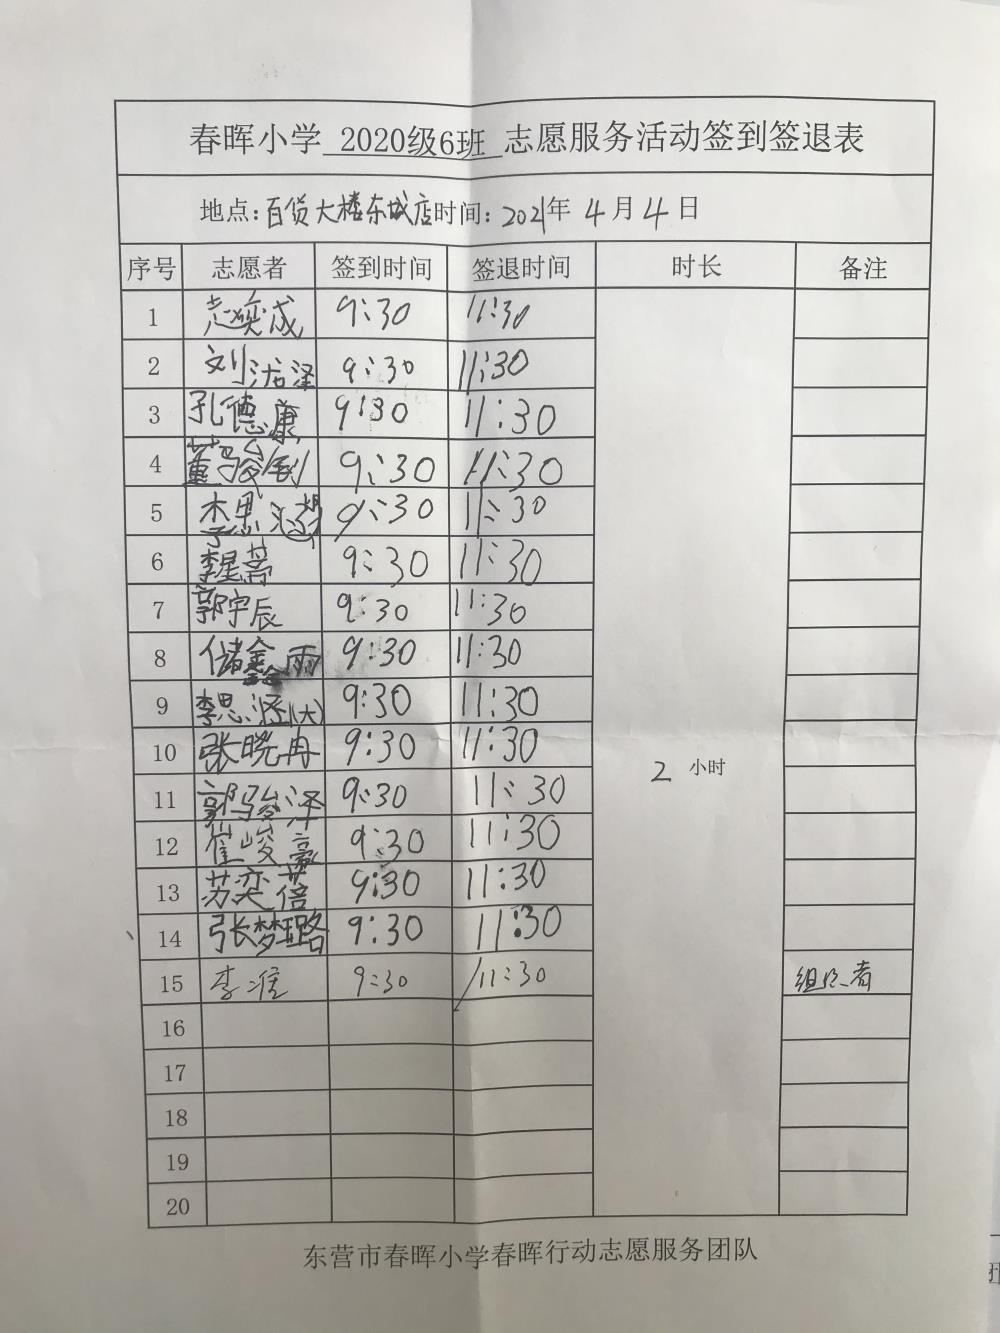 春晖小学 2020级6班 志愿服务活动签到签退表
地点：百货大楼东城店时间：2021年 4月 4日
序号 志愿者 签到时间 签退时间 时长 备注
1 奕成 9:30 11:30
2 刘洁泽 9:30 11:30
3 孔德康 9:30 11:30
4 董骏 9:30 11:30
5 李思涵 9:30 11:30
6 李星蒿 9:30 11:30
7 郭宇辰 9:30 11:30
8 储鑫雨 9:30 11:30
9 李思涵(大) 9:30 11:30
10 张晓冉 9:30 11:30
2 小时
11 郭骏泽 9:30 11:30
12 崔峻豪 9:30 11:30
13 苏奕蓓 9:30 11:30
14 张梦璐 9:30 11:30
15 李准 9:30 11:30 组织者
16
17
18
19
20
东营市春晖小学春晖行动志愿服务团队